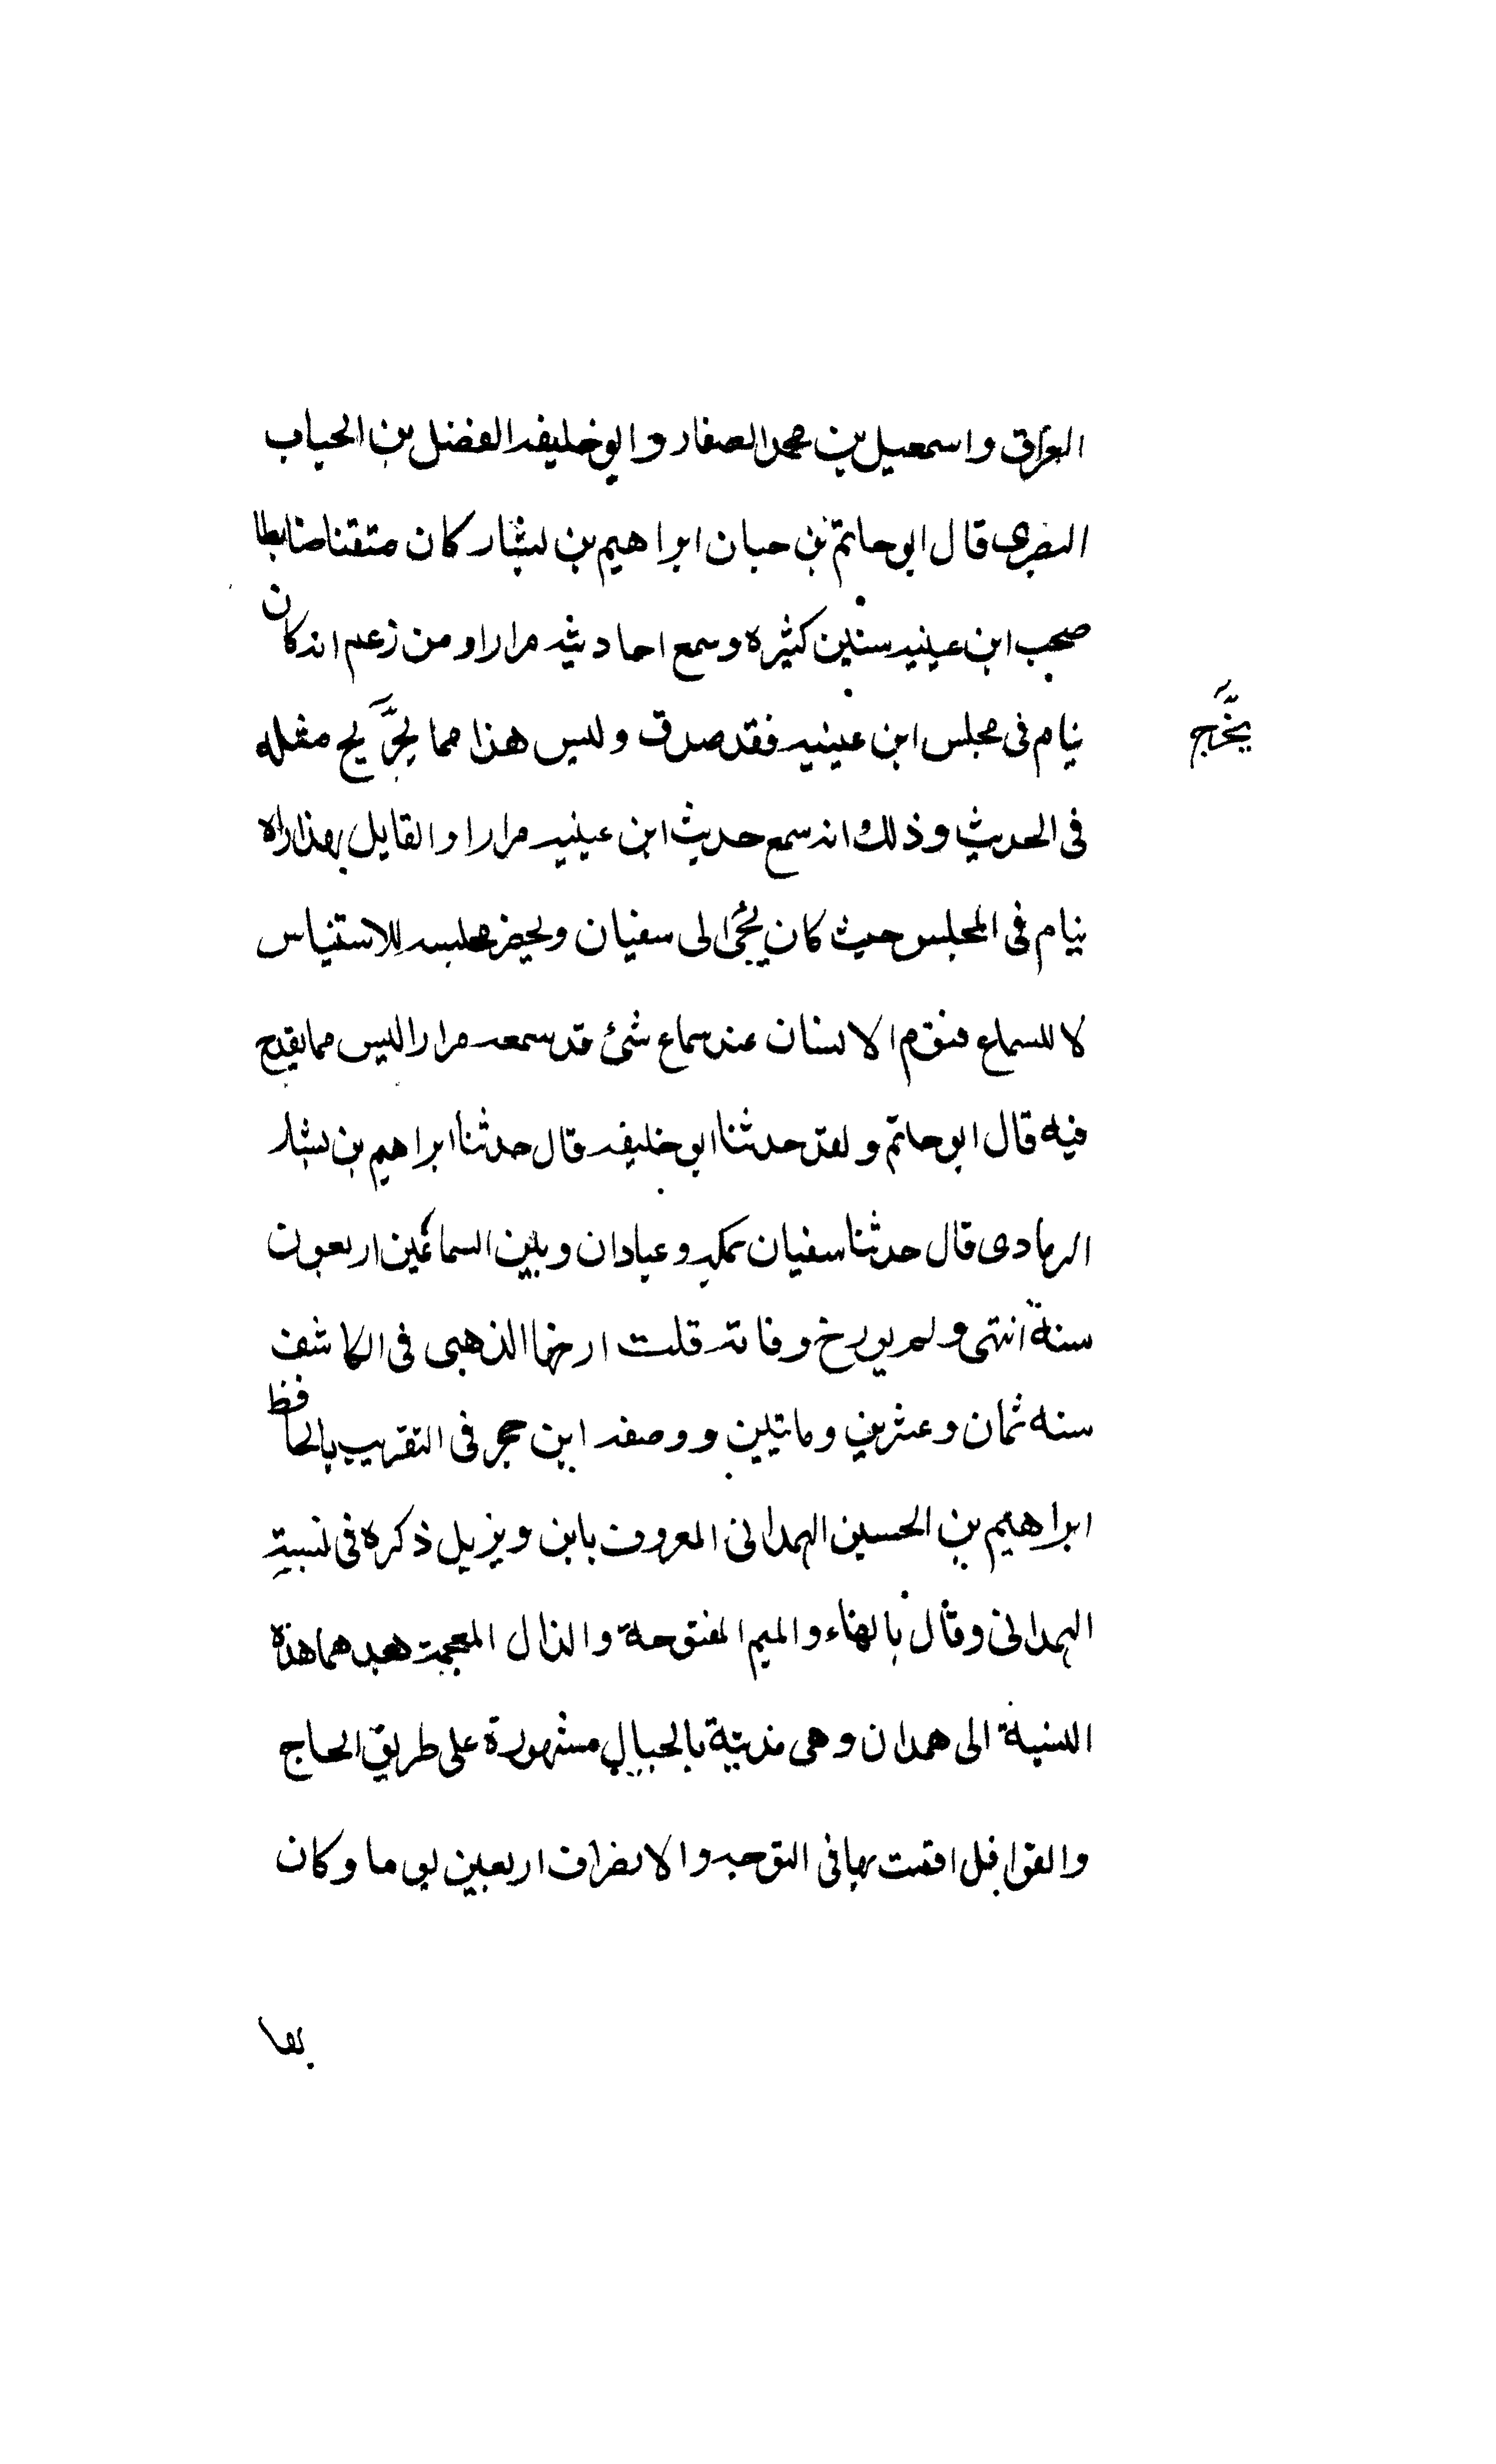 العراقى واسمعيل بن محمد الصفار وابو خليفه الفضل بن الحباب
البصرى قال ابو حاتم بن حبان ابراهيم بن بشار كان متقنا ضابطا
صحب ابن عيينه سنين كثيره وسمع احاديثه مرارا ومن زعم انه كان
ينام فى مجلس ابن عيينه فقد صدق وليس هذا مما يجرح مثله
يخرج
فى الحديث وذلك انه سمع حديث ابن عيينه مرارا والقايل بهذا راه
ينام فى المجلس حيث كان يجئ الى سفيان ويحضر مجلسه للاستيناس
لا للسماع فنوم الانسان عند سماع شئ قد سمعه مرارا ليس مما يقدح
فيه قال ابو حاتم ولقد حدثنا ابو خليفه قال حدثنا ابراهيم بن بشار
الرمادى قال حدثنا سفيان بمكه وعبادان وبين السماعين اربعون
سنة انتهى ولم يورخ وفاته قلت ارخها الذهبى فى الكاشف
سنه ثمان وعشرين وماتين ووصفه ابن حجر فى التقريب بالحافظ
ابراهيم بن الحسين الهمدانى المعروف بابن ويزيل ذكره فى نسبة
الهمدانى وقال بالهاء والميم المفتوحة والذال المعجمة بعدهما هذه
النسبة الى همدان وهى مدينة بالجبال مشهورة على طريق الحاج
والقوافل اقمت بها فى التوجه والانصراف اربعين يوما وكان
بها